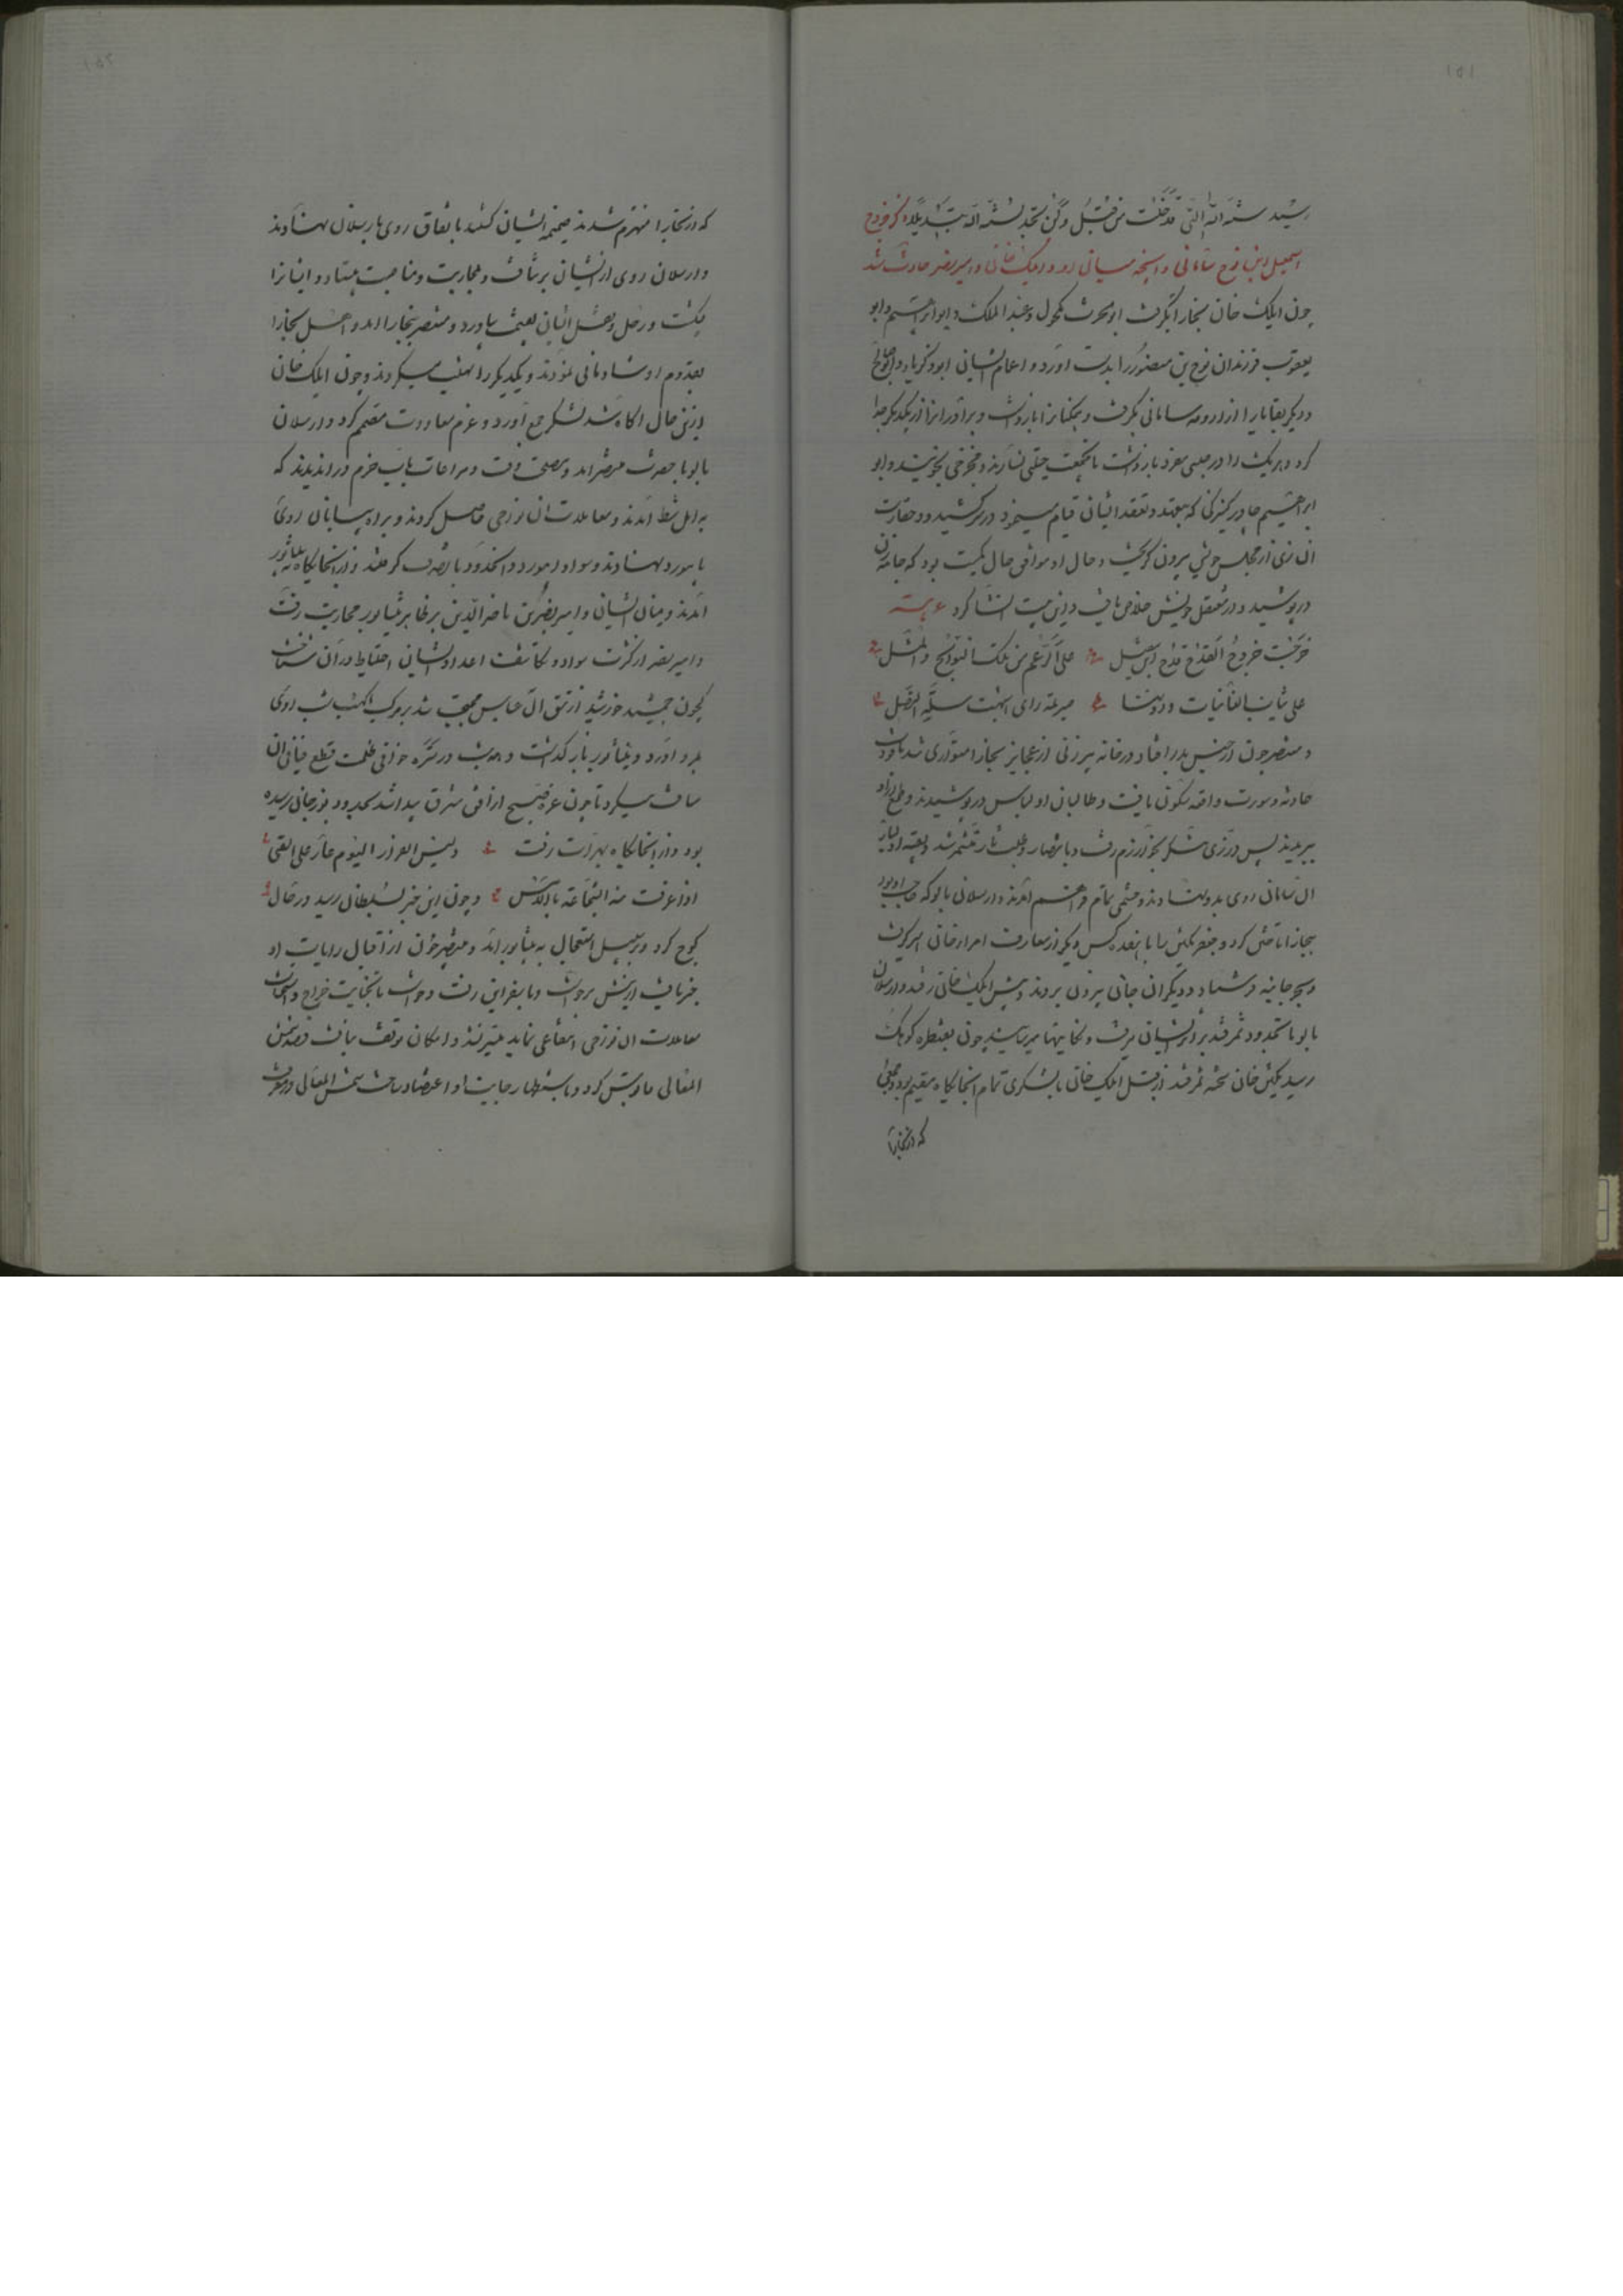 ۱۵۱
رسید سنة الله التی قد خلت من قبل ولن تجد لسنة الله تبدیلا ذکر خروج
اسمعیل ابن نوح سامانی و انچه میان او و ایلک خان و امیر نصر حادث شد
چون ایلک خان بخارا بگرفت ابو الحرث مکحول و عبد الملک و ابو ابراهیم و ابو
یعقوب فرزندان نوح بن منصور را بدست اورد و اعمام ایشان ابو زکریا و ابو صالح
و دیگر بقایا را از ارومه سامانی بگرفت و همکنانرا باز داشت و برادرانرا از یکدیگر جدا
کرد و هر یک را در مجلسی مفرد باز داشت تا حیلتی نسازند و مخرجی نجویند و ابو
ابراهیم چادر کنیزکی که بتعهد و تفقد ایشان قیام مینمود در سر کشید و در
ان زی از مجلس خویش بیرون گریخت و حال او موافق حال کمیت بود که جامه زن
در پوشید و از معتقل خویش خلاص یافت و این بیت انشا کرد عربیة
خرجت خروج القدح قدح ابن مقبل علی الرغم من تلک النوابح والمشلی
علی ثیاب الغانیات و دونها صریمة رای اشبهت سلة النصل
و منتصر چون از حبس بدر افتاد در خانه پیرزنی از عجایز بخارا متواری شد تا
حادثه و سورت واقعه سکون یافت و طالبان او لباس در پوشیدند و طمع ازو
ببریدند پس در زی متنکر بخوارزم رفت و بانتصار و طلب ثار متشمر شد و بقیه اولیاء
ال سامان روی بدو نهادند و حشمی تمام فراهم امدند و ارسلان بالو که حاجب او بود
ببخارا تاختن کرد و جعفر تکین را با هفده کس دیگر از معارف امراء خانی اسیر گرفت
و بجرجانیه فرستاد و دیگران جان بیرون بردند و پیش ایلک خان رفتند و ارسلان
بالو تا بحدود سمرقند بر اثر ایشان میرفت و نکایتها میرسانید چون بقنطره کوهک
رسید تکین خان شحنه سمرقند از قبل ایلک خان با لشکری تمام انجایگاه مقیم بود و جمعی
که از بخارا
۱۵۲
که از بخارا منهزم شدند ضمیمه ایشان گشته باتفاق روی بارسلان نهادند
و ارسلان روی از ایشان برنتافت و بمحاربت و مناصبت بیستاد و ایشانرا
بشکست و رحل و ثقل ایشان بغنیمت بیاورد و منتصر ببخارا امد و اهل بخارا
بقدوم او شادمانی نمودند و یکدیگر را تهنیت میکردند و چون ایلک خان
ازین حال آگاه شد لشکر جمع آورد و عزم معاودت مصمم کرد و ارسلان
بالو با حضرت منتصر امد و بمصلحت وقت و مراعات جانب حزم در ان دیدند که
به امل شط آمدند و معاملات ان نواحی حاصل کردند و براه بیابان روی
بابیورد نهادند و سواد ابیورد و ان حدود با تصرف گرفتند و از انجایگاه به نیشابور
آمدند و میان ایشان و امیر نصر بن ناصر الدین بر ظاهر نیشابور محاربت رفت
و امیر نصر از کثرت سواد و تکاثف اعداد ایشان احتیاط در ان شناخت
که چون جمشید خورشید از تتق ال عباس محتجب شد بر مرکب اشهب شب روی
براه اورد و نیشابور باز گذاشت و همه شب در ستره حوافی ظلمت قطع فیافی ان
مسافت میکرد تا چون غره صبح از افق مشرق پیدا شد بحدود بوزجان رسیده
بود و از انجایگاه بهرات رفت ولیس الفرار الیوم عار علی الفتی
اذا عرفت منه الشجاعة بالامس و چون این خبر بسلطان رسید در حال
کوچ کرد و بر سبیل استعجال به نیشابور آمد و منتصر چون از اقبال رایات او
خبر یافت از پیش برخاست و باسفراین رفت و خواست تا بجبایت خراج و استخراج
معاملات ان نواحی انتفاعی نماید میسر نشد و امکان توقف نیافت و قصد شمس
المعالی قابوس کرد و باستظهار حمایت او اعتضاد ساخت شمس المعالی